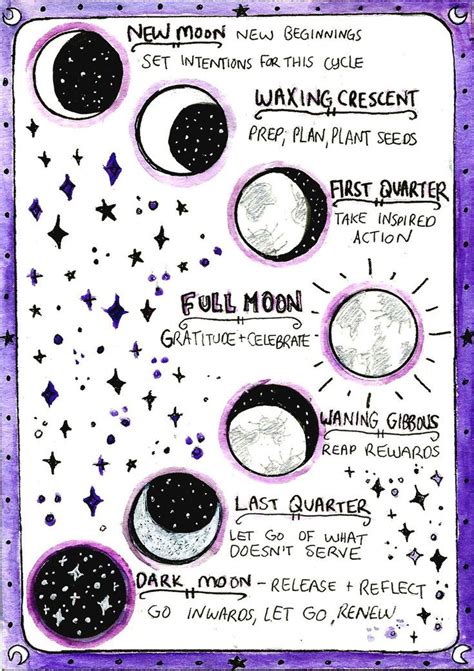 NEW MOON NEW BEGINNINGS
SET INTENTIONS FOR THIS CYCLE
WAXING CRESCENT
PREP, PLAN, PLANT SEEDS
FIRST QUARTER
TAKE INSPIRED
ACTION
FULL MOON
GRATITUDE + CELEBRATE
WANING GIBBOUS
REAP REWARDS
LAST QUARTER
LET GO OF WHAT
DOESN'T SERVE
DARK MOON - RELEASE + REFLECT
GO INWARDS, LET GO, RENEW